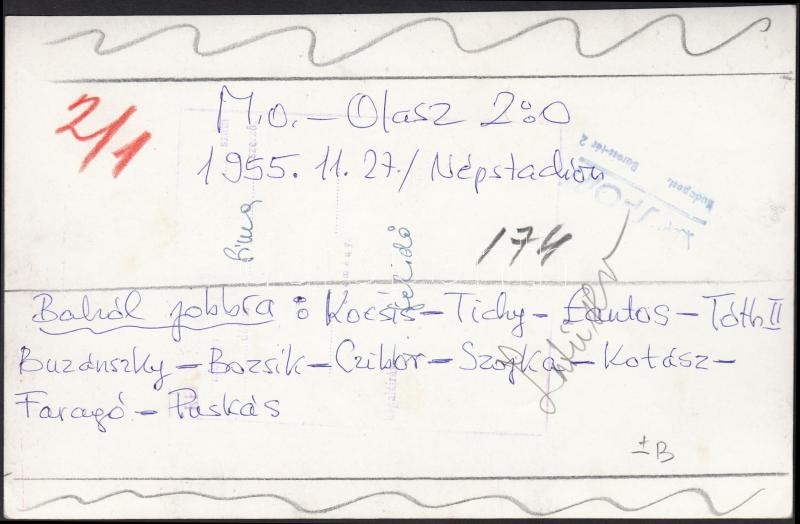 2/1
M.o. – Olasz 2:0
1955. 11. 27./ Népstadion
Baross-tér 2
Budapest,
174
Balról jobbra: Kocsis – Tichy – Lantos – Tóth II
Buzánszky – Bozsik – Czibor – Szojka – Kotász –
Faragó – Puskás
±B